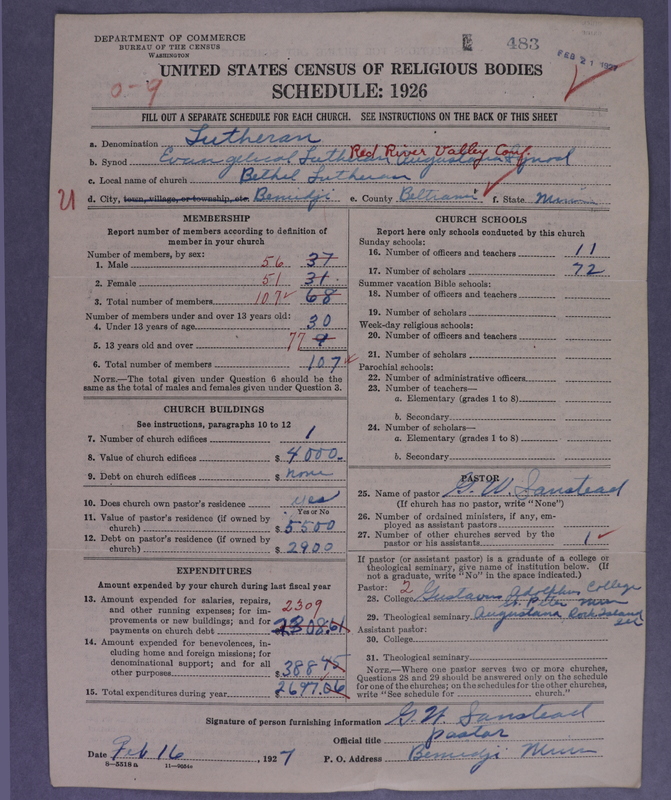 DEPARTMENT OF COMMERCE
BUREAU OF THE CENSUS
WASHINGTON
483
FEB 21 1927
UNITED STATES CENSUS OF RELIGIOUS BODIES
0-9
SCHEDULE: 1926
FILL OUT A SEPARATE SCHEDULE FOR EACH CHURCH. SEE INSTRUCTIONS ON THE BACK OF THIS SHEET
a. Denomination Lutheran
Red River Valley Conf.
b. Synod Evangelical Lutheran Augustana Synod
c. Local name of church Bethel Lutheran
U
d. City, town, village, or township, etc. Bemidji e. County Beltrami f. State Minn
MEMBERSHIP
Report number of members according to definition of
member in your church
Number of members, by sex:
1. Male 56 37
2. Female 51 31
3. Total number of members 107 68
Number of members under and over 13 years old:
4. Under 13 years of age 30
5. 13 years old and over 77
6. Total number of members 107
NOTE.—The total given under Question 6 should be the
same as the total of males and females given under Question 3.
CHURCH BUILDINGS
See instructions, paragraphs 10 to 12
7. Number of church edifices 1
8. Value of church edifices $ 4000.
9. Debt on church edifices $ none
10. Does church own pastor's residence yes
Yes or No
11. Value of pastor's residence (if owned by
church) $ 5500
12. Debt on pastor's residence (if owned by
church) $ 2900
EXPENDITURES
Amount expended by your church during last fiscal year
13. Amount expended for salaries, repairs,
and other running expenses; for im-
provements or new buildings; and for
payments on church debt $ 2309 2308.61
14. Amount expended for benevolences, in-
cluding home and foreign missions; for
denominational support; and for all
other purposes $ 388 45
15. Total expenditures during year $ 2697.06
CHURCH SCHOOLS
Report here only schools conducted by this church
Sunday schools:
16. Number of officers and teachers 11
17. Number of scholars 72
Summer vacation Bible schools:
18. Number of officers and teachers
19. Number of scholars
Week-day religious schools:
20. Number of officers and teachers
21. Number of scholars
Parochial schools:
22. Number of administrative officers
23. Number of teachers—
a. Elementary (grades 1 to 8)
b. Secondary
24. Number of scholars—
a. Elementary (grades 1 to 8)
b. Secondary
PASTOR
25. Name of pastor G. W. Sanstead
(If church has no pastor, write "None")
26. Number of ordained ministers, if any, em-
ployed as assistant pastors
27. Number of other churches served by the
pastor or his assistants 1
If pastor (or assistant pastor) is a graduate of a college or
theological seminary, give name of institution below. (If
not a graduate, write "No" in the space indicated.)
Pastor: 2
28. College Gustavus Adolphus College
St. Peter Minn
29. Theological seminary Augustana Rock Island
Ill
Assistant pastor:
30. College
31. Theological seminary
NOTE.—Where one pastor serves two or more churches,
Questions 28 and 29 should be answered only on the schedule
for one of the churches; on the schedules for the other churches,
write "See schedule for church."
Signature of person furnishing information G. W. Sanstead
Official title pastor
Date Feb 16, 1927 P. O. Address Bemidji Minn
8—5518 a 11—9034a